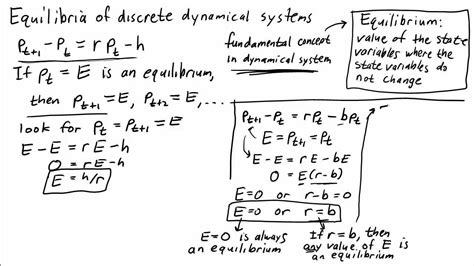 Equilibria of discrete dynamical systems
P_{t+1} - P_t = r P_t - h
If P_t = E is an equilibrium,
then P_{t+1} = E, P_{t+2} = E, ....
look for P_t = P_{t+1} = E
E - E = rE - h
0 = rE - h
E = h/r
fundamental concept
in dynamical system
Equilibrium:
value of the state
variables where the
state variables do
not change
P_{t+1} - P_t = rP_t - bP_t
E = P_{t+1} = P_t
E - E = rE - bE
0 = E(r-b)
E=0 or r-b=0
E=0 or r=b
E=0 is always
an equilibrium
If r=b, then
any value of E is
an equilibrium